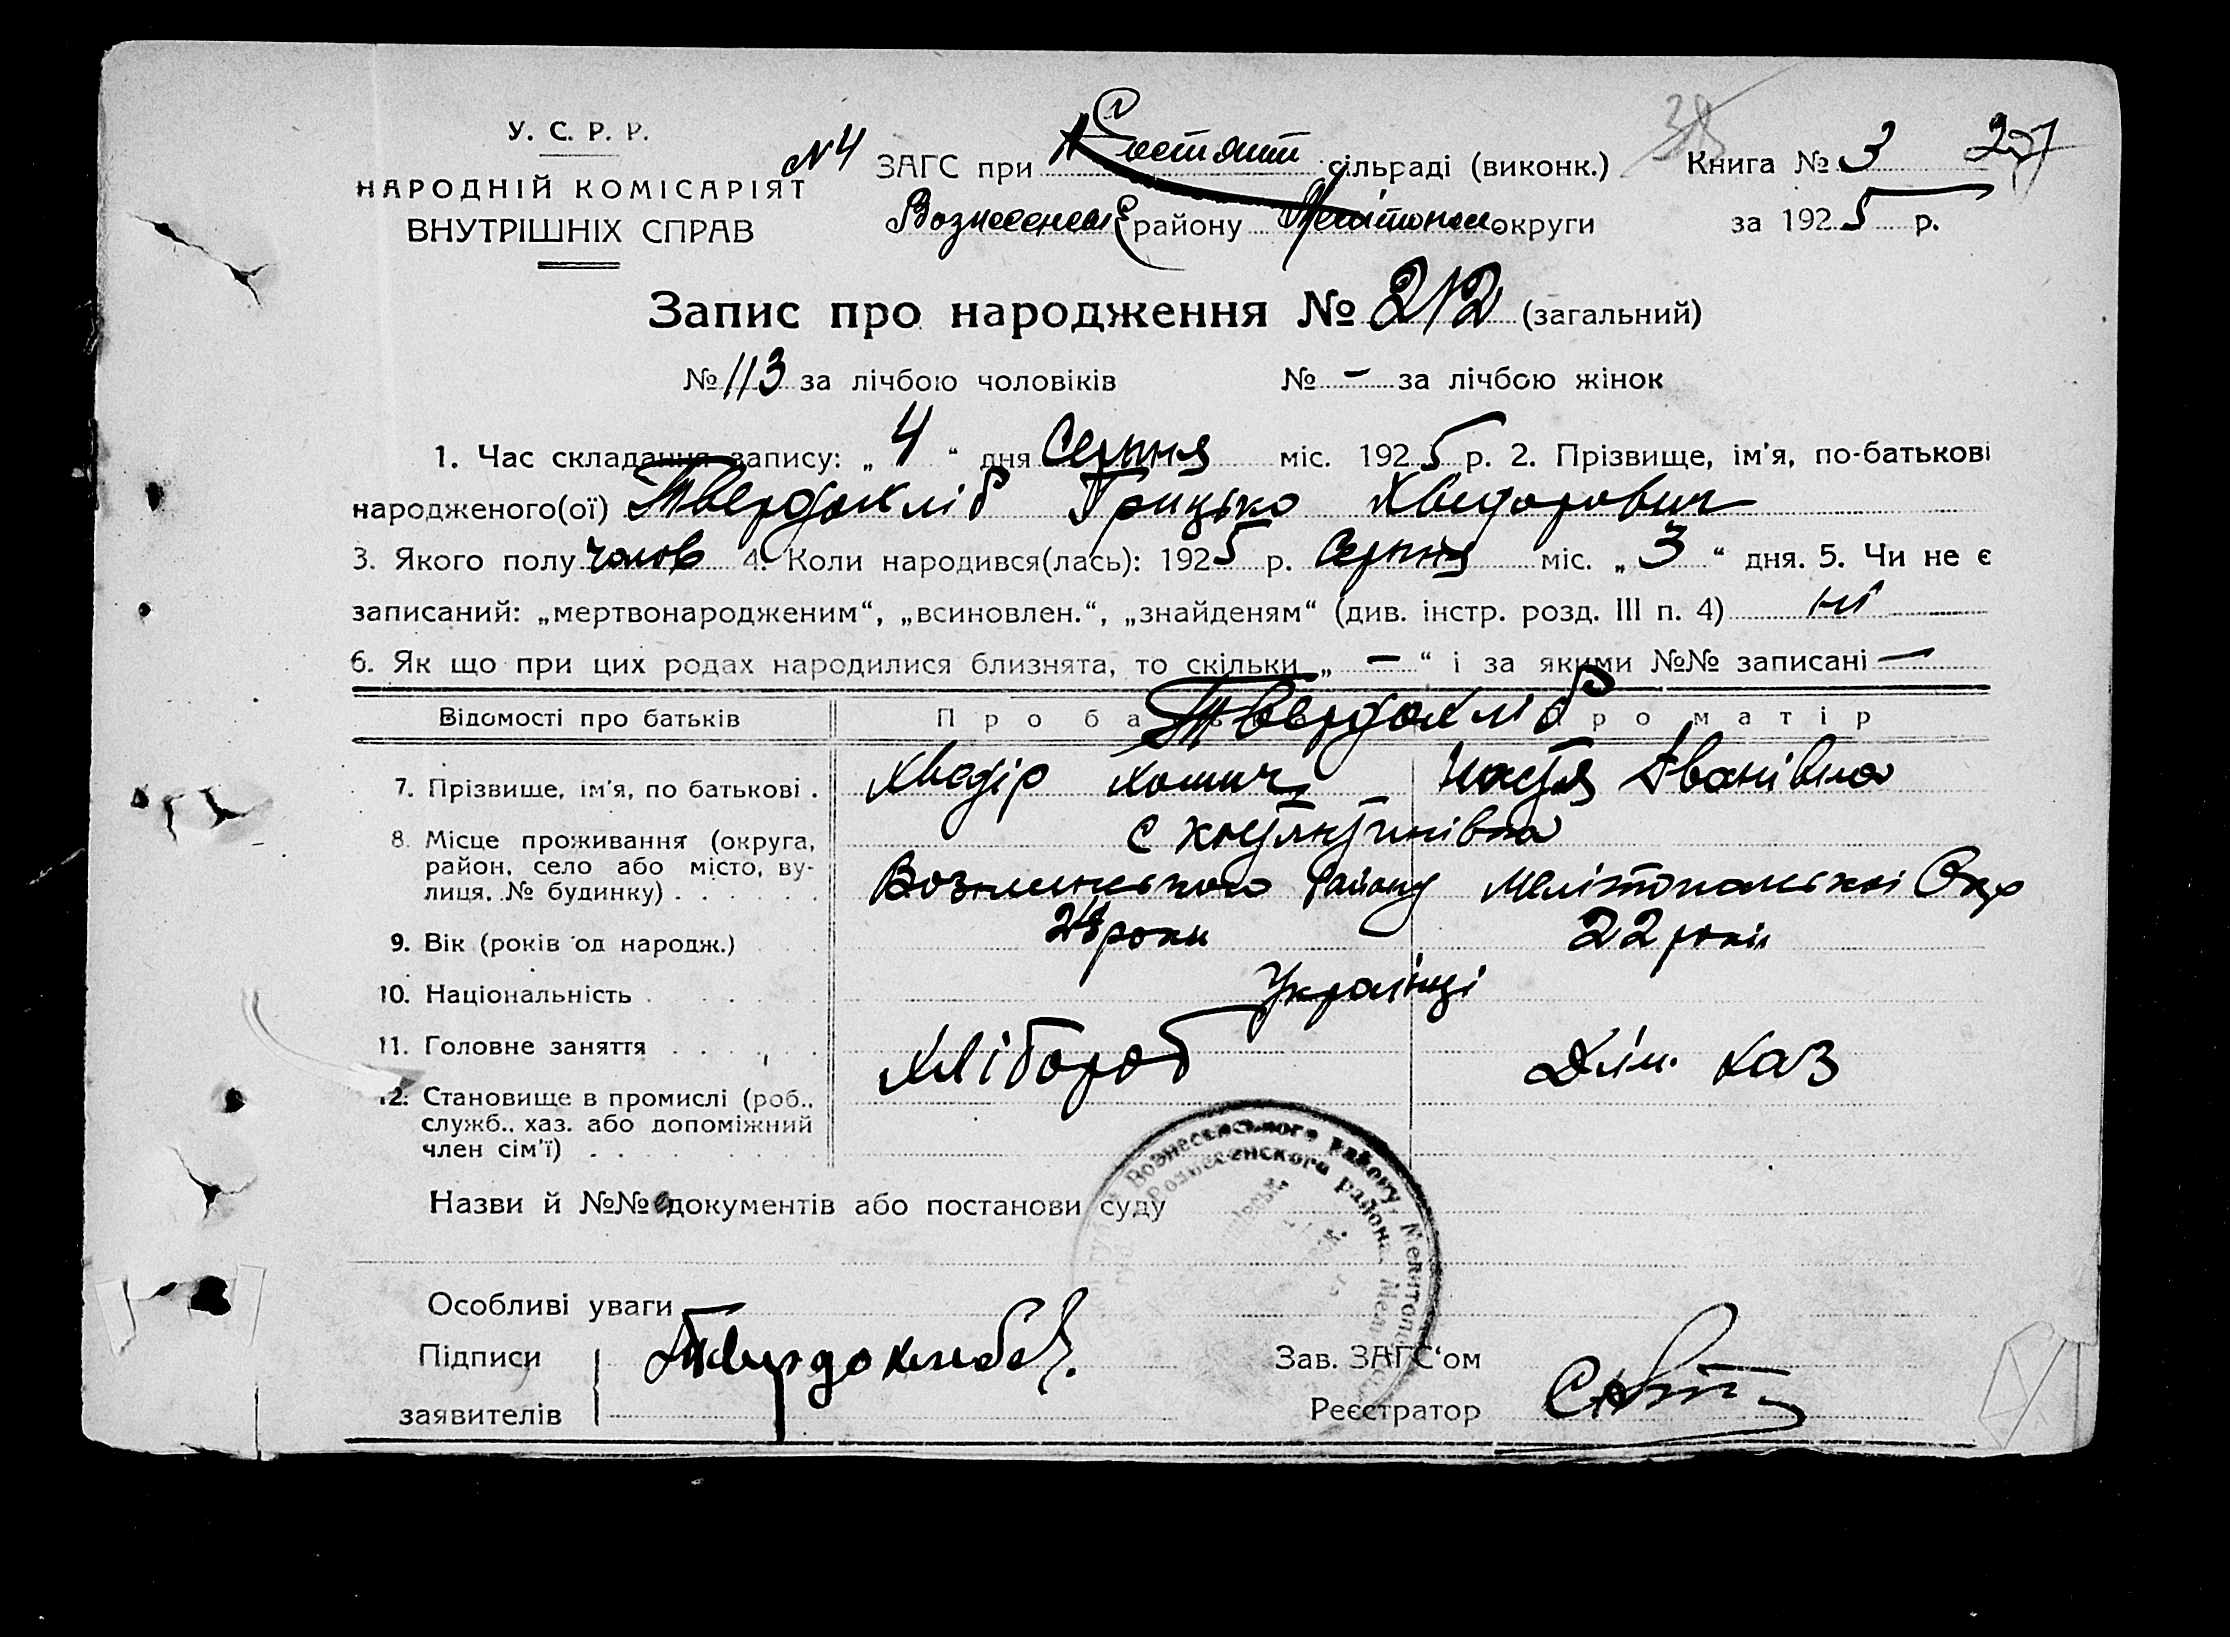 У. С. Р. Р.
НАРОДНІЙ КОМІСАРІЯТ
ВНУТРІШНІХ СПРАВ
N4 ЗАГС при Костянт сільраді (виконк.)
Вознесенськ району Мелітопол округи
38
Книга № 3 237
за 1925 р.
Запис про народження № 212 (загальний)
№ 113 за лічбою чоловіків № — за лічбою жінок
1. Час складання запису: „ 4 “ дня Серпня міс. 1925 р. 2. Прізвище, ім'я, по-батькові
народженого(ої) Твердохліб Грицько Хведорович
3. Якого полу чолов 4. Коли народився(лась): 1925 р. Серпня міс. „ 3 “ дня. 5. Чи не є
записаний: „мертвонародженим“, „всиновлен.“, „знайденям“ (див. інстр. розд. III п. 4) ні
6. Як що при цих родах народилися близнята, то скільки „ — “ і за якими №№ записані —
Відомості про батьків Про ба Твердохліб ро матір
7. Прізвище, ім'я, по батькові . Хведір Хомич Настя Іванівна
8. Місце проживання (округа, район, село або місто, вулиця, № будинку) . . . . . .
с Костянтинівка
Вознесенського району Мелітопольскої Окр
9. Вік (років од народж.) роки 22 років
10. Національність . . . . Українці
11. Головне заняття . . . . . Хлібороб Дім. хаз
12. Становище в промислі (роб.,
служб., хаз. або допоміжний
член сім'ї) . . . . . .
Назви й №№ документів або постанови суду
Вознесенського району, Мелітопо
Вознесенского района Мел
Особливі уваги —
Підписи
заявителів
Твердохлеб
Зав. ЗАГС‘ом
Реєстратор